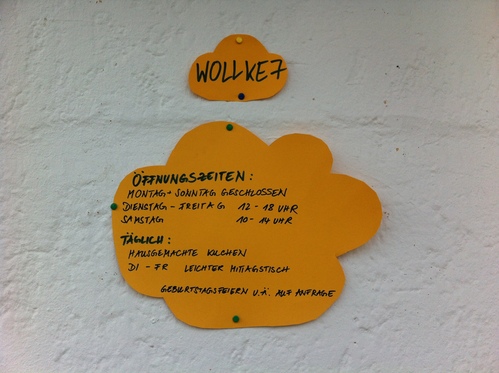 WOLLKE7
ÖFFNUNGSZEITEN:
MONTAG + SONNTAG GESCHLOSSEN
DIENSTAG - FREITAG 12 - 18 UHR
SAMSTAG 10 - 14 UHR
TÄGLICH:
HAUSGEMACHTE KUCHEN
DI - FR LEICHTER MITTAGSTISCH
GEBURTSTAGSFEIERN U.Ä. AUF ANFRAGE